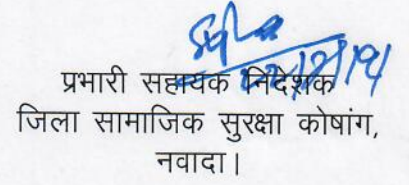 प्रभारी सहायक निदेशक
जिला सामाजिक सुरक्षा कोषांग,
नवादा।